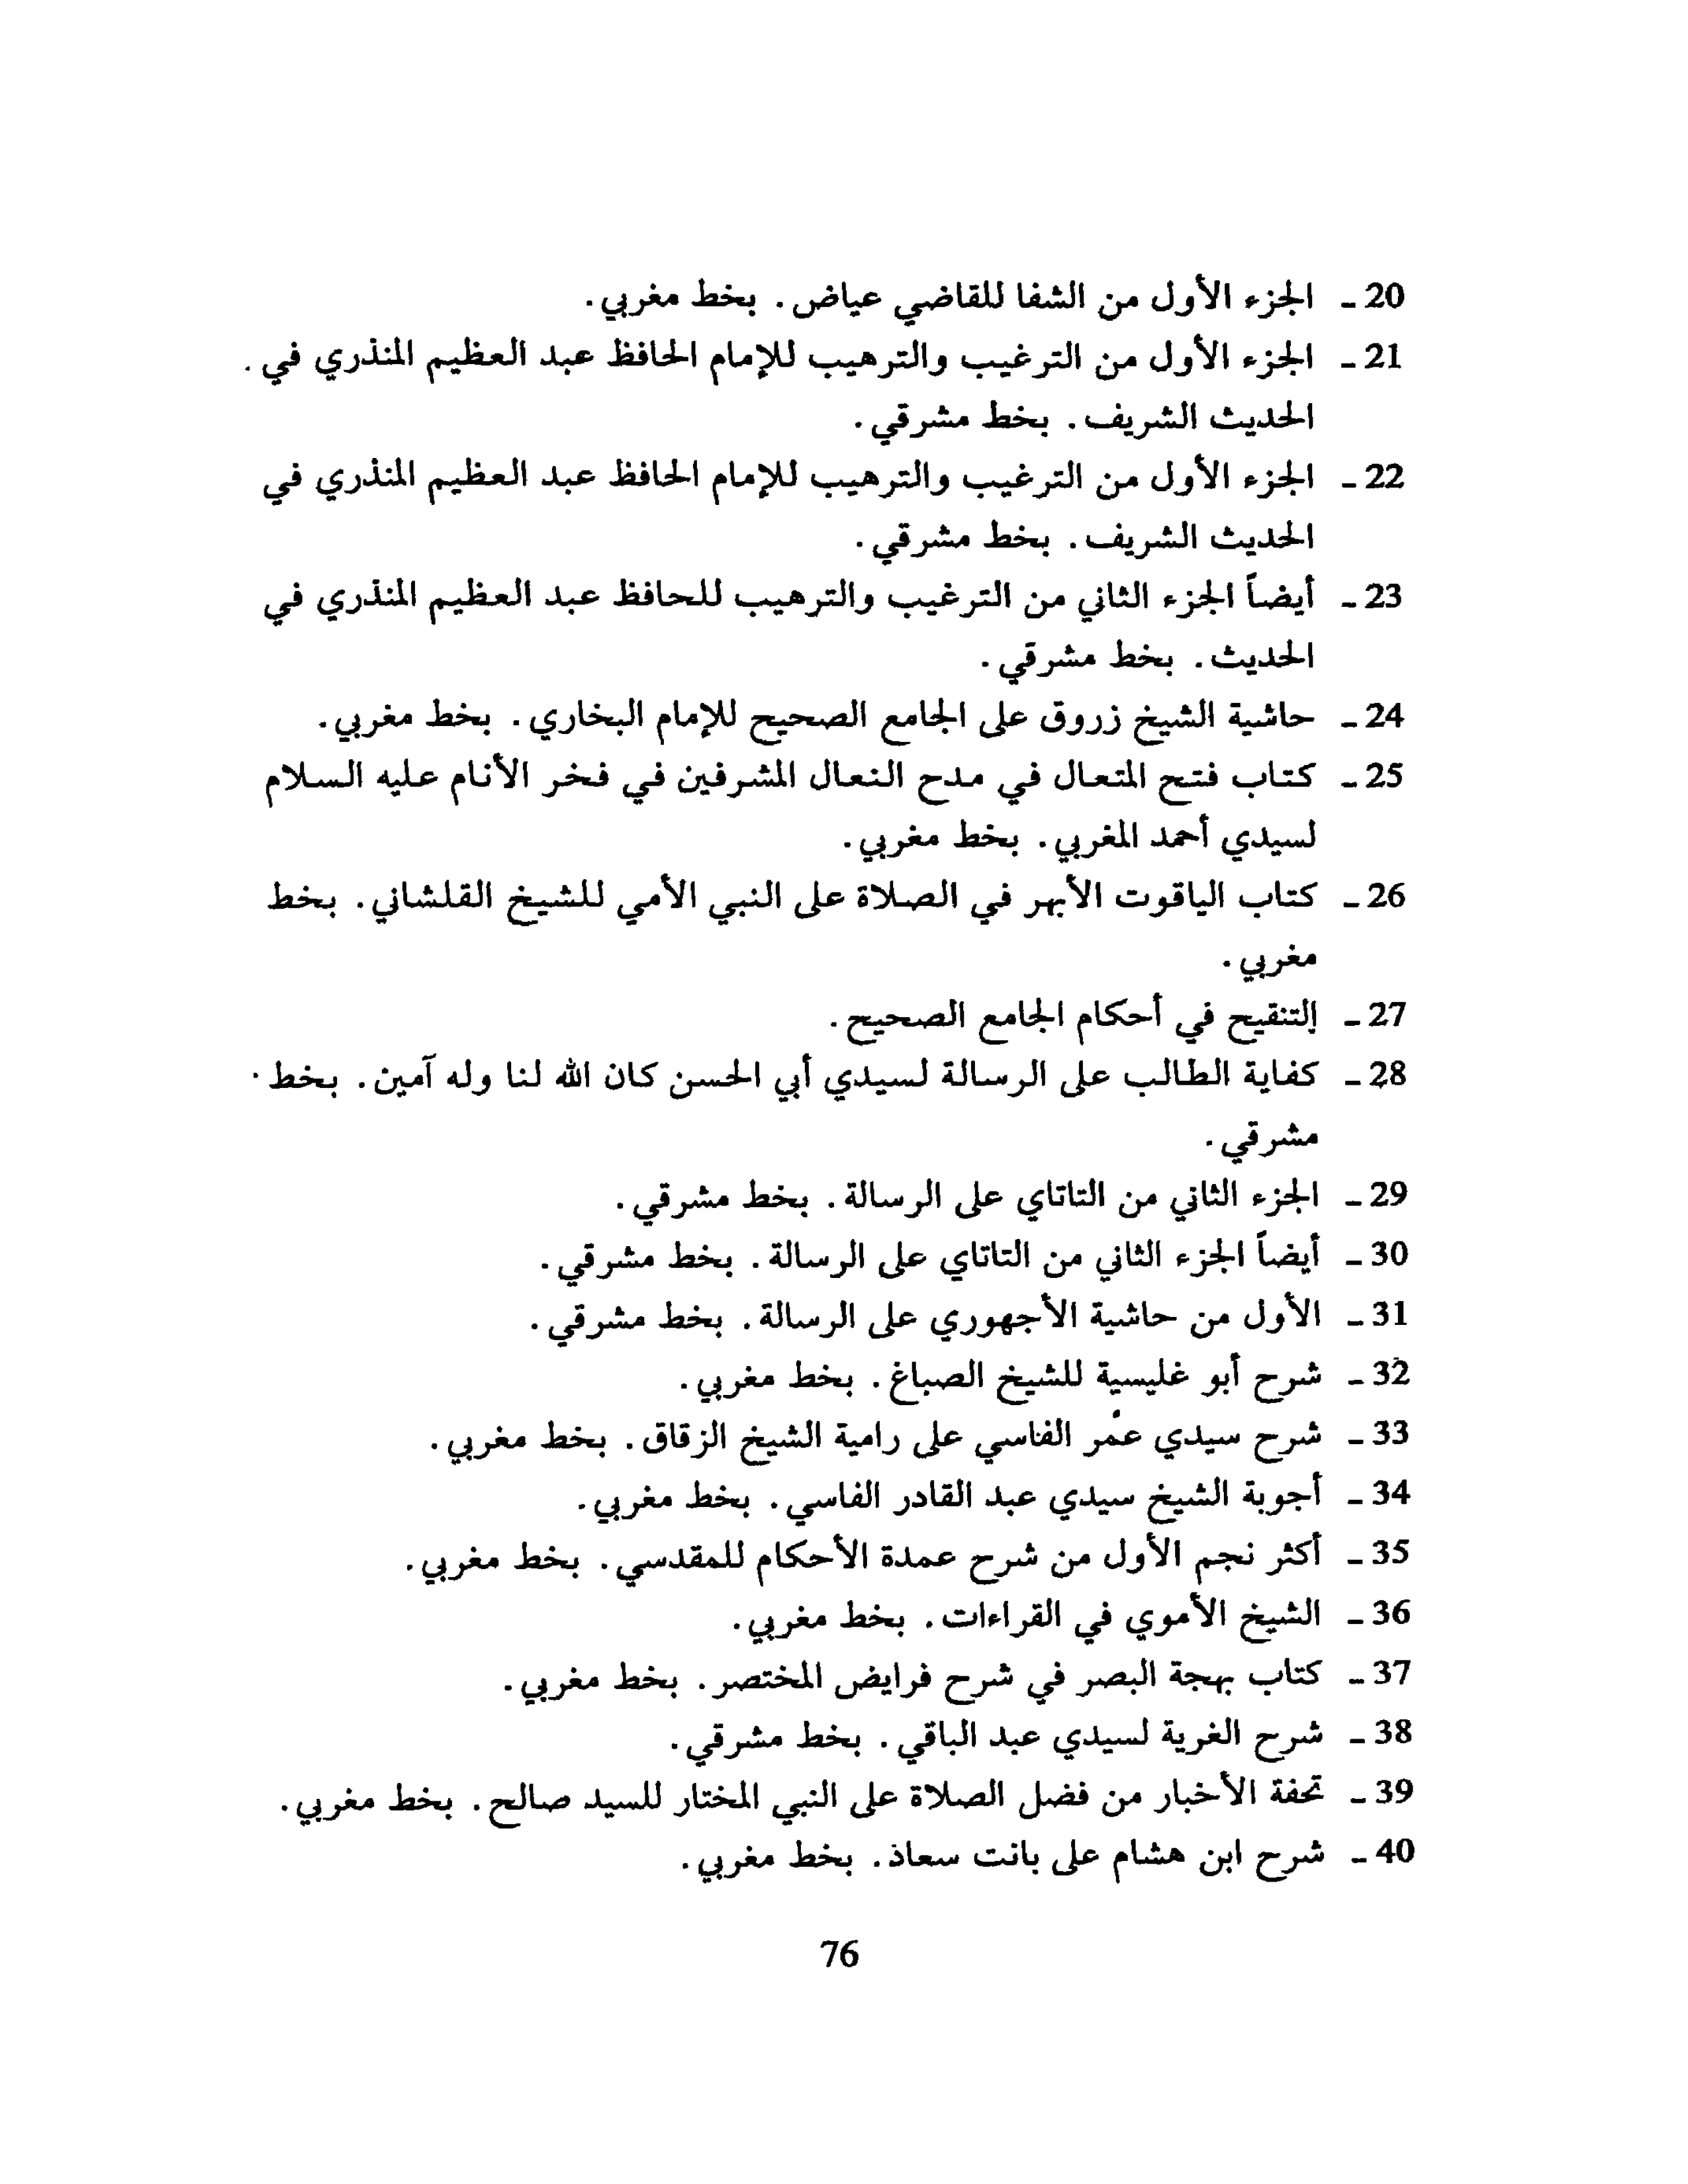 20 ـ الجزء الأول من الشفا للقاضي عياض. بخط مغربي.
21 ـ الجزء الأول من الترغيب والترهيب للإمام الحافظ عبد العظيم المنذري في .
الحديث الشريف. بخط مشرقي.
22 ـ الجزء الأول من الترغيب والترهيب للإمام الحافظ عبد العظيم المنذري في
الحديث الشريف. بخط مشرقي.
23 ـ أيضاً الجزء الثاني من الترغيب والترهيب للحافظ عبد العظيم المنذري في
الحديث. بخط مشرقي.
24 ـ حاشية الشيخ زروق على الجامع الصحيح للإمام البخاري. بخط مغربي.
25 ـ كتاب فتح المتعال في مدح النعال المشرفين في فخر الأنام عليه السلام
لسيدي أحمد المغربي. بخط مغربي.
26 ـ كتاب الياقوت الأبهر في الصلاة على النبي الأمي للشيخ القلشاني. بخط
مغربي.
27 ـ إلتنقيح في أحكام الجامع الصحيح.
28 ـ كفاية الطالب على الرسالة لسيدي أبي الحسن كان الله لنا وله آمين. بخط
مشرقي.
29 ـ الجزء الثاني من التاتاي على الرسالة. بخط مشرقي.
30 ـ أيضاً الجزء الثاني من التاتاي على الرسالة. بخط مشرقي.
31 ـ الأول من حاشية الأجهوري على الرسالة. بخط مشرقي.
32 ـ شرح أبو غليسية للشيخ الصباغ. بخط مغربي.
33 ـ شرح سيدي عمر الفاسي على رامية الشيخ الزقاق. بخط مغربي.
34 ـ أجوبة الشيخ سيدي عبد القادر الفاسي. بخط مغربي.
35 ـ أكثر نجم الأول من شرح عمدة الأحكام للمقدسي. بخط مغربي.
36 ـ الشيخ الأموي في القراءات. بخط مغربي.
37 ـ كتاب بهجة البصر في شرح فرايض المختصر. بخط مغربي.
38 ـ شرح الغرية لسيدي عبد الباقي. بخط مشرقي.
39 ـ تحفة الأخبار من فضل الصلاة على النبي المختار للسيد صالح. بخط مغربي.
40 ـ شرح ابن هشام على بانت سعاذ. بخط مغربي.
76